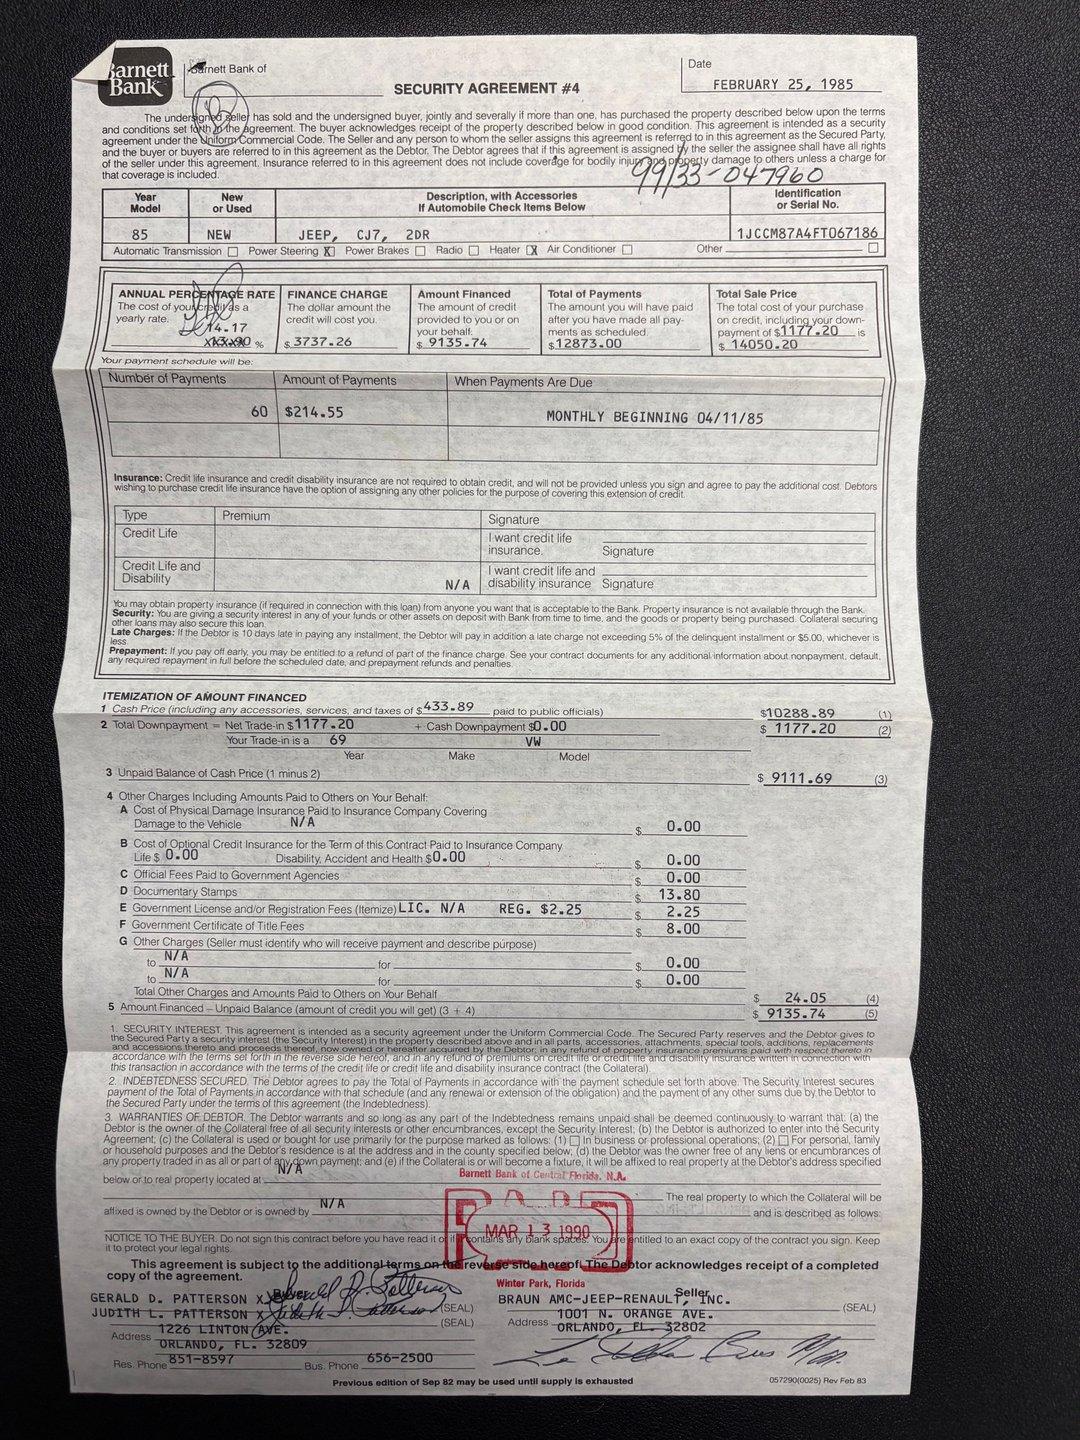 Barnett Bank
Barnett Bank of
SECURITY AGREEMENT #4
Date
FEBRUARY 25, 1985
The undersigned seller has sold and the undersigned buyer, jointly and severally if more than one, has purchased the property described below upon the terms
and conditions set forth in the agreement. The buyer acknowledges receipt of the property described below in good condition. This agreement is intended as a security
agreement under the Uniform Commercial Code. The Seller and any person to whom the seller assigns this agreement is referred to in this agreement as the Secured Party,
and the buyer or buyers are referred to in this agreement as the Debtor. The Debtor agrees that if this agreement is assigned by the seller the assignee shall have all rights
of the seller under this agreement. Insurance referred to in this agreement does not include coverage for bodily injury and property damage to others unless a charge for
that coverage is included.
99/33-047960
Year Model
New or Used
Description, with Accessories If Automobile Check Items Below
Identification or Serial No.
85 NEW JEEP, CJ7, 2DR 1JCCM87A4FT067186
Automatic Transmission ☐ Power Steering ☒ Power Brakes ☐ Radio ☐ Heater ☒ Air Conditioner ☐ Other ☐
ANNUAL PERCENTAGE RATE
The cost of your credit as a
yearly rate.
14.17
%
FINANCE CHARGE
The dollar amount the
credit will cost you.
$ 3737.26
Amount Financed
The amount of credit
provided to you or on
your behalf:
$ 9135.74
Total of Payments
The amount you will have paid
after you have made all pay-
ments as scheduled.
$12873.00
Total Sale Price
The total cost of your purchase
on credit, including your down-
payment of $1177.20 is
$ 14050.20
Your payment schedule will be:
Number of Payments Amount of Payments When Payments Are Due
60 $214.55 MONTHLY BEGINNING 04/11/85
Insurance: Credit life insurance and credit disability insurance are not required to obtain credit, and will not be provided unless you sign and agree to pay the additional cost. Debtors
wishing to purchase credit life insurance have the option of assigning any other policies for the purpose of covering this extension of credit.
Type Premium Signature
Credit Life
I want credit life
insurance. Signature
Credit Life and
Disability N/A
I want credit life and
disability insurance Signature
You may obtain property insurance (if required in connection with this loan) from anyone you want that is acceptable to the Bank. Property insurance is not available through the Bank.
Security: You are giving a security interest in any of your funds or other assets on deposit with Bank from time to time, and the goods or property being purchased. Collateral securing
other loans may also secure this loan.
Late Charges: If the Debtor is 10 days late in paying any installment, the Debtor will pay in addition a late charge not exceeding 5% of the delinquent installment or $5.00, whichever is
less
Prepayment: If you pay off early, you may be entitled to a refund of part of the finance charge. See your contract documents for any additional information about nonpayment, default,
any required repayment in full before the scheduled date, and prepayment refunds and penalties.
ITEMIZATION OF AMOUNT FINANCED
1 Cash Price (including any accessories, services, and taxes of $433.89 paid to public officials) $10288.89 (1)
2 Total Downpayment = Net Trade-in $1177.20 + Cash Downpayment $0.00 $ 1177.20 (2)
Your Trade-in is a 69 VW
Year Make Model
3 Unpaid Balance of Cash Price (1 minus 2) $ 9111.69 (3)
4 Other Charges Including Amounts Paid to Others on Your Behalf:
A Cost of Physical Damage Insurance Paid to Insurance Company Covering
Damage to the Vehicle N/A $ 0.00
B Cost of Optional Credit Insurance for the Term of this Contract Paid to Insurance Company
Life $ 0.00 Disability, Accident and Health $0.00 $ 0.00
C Official Fees Paid to Government Agencies $ 0.00
D Documentary Stamps $ 13.80
E Government License and/or Registration Fees (Itemize) LIC. N/A REG. $2.25 $ 2.25
F Government Certificate of Title Fees $ 8.00
G Other Charges (Seller must identify who will receive payment and describe purpose)
to N/A for $ 0.00
to N/A for $ 0.00
Total Other Charges and Amounts Paid to Others on Your Behalf $ 24.05 (4)
5 Amount Financed – Unpaid Balance (amount of credit you will get) (3 + 4) $ 9135.74 (5)
1. SECURITY INTEREST. This agreement is intended as a security agreement under the Uniform Commercial Code. The Secured Party reserves and the Debtor gives to
the Secured Party a security interest (the Security Interest) in the property described above and in all parts, accessories, attachments, special tools, additions, replacements
and accessions thereto and proceeds thereof, now owned or hereafter acquired by the Debtor; in any refund of property insurance premiums paid with respect thereto in
accordance with the terms set forth in the reverse side hereof, and in any refund of premiums on credit life or credit life and disability insurance written in connection with
this transaction in accordance with the terms of the credit life or credit life and disability insurance contract (the Collateral).
2. INDEBTEDNESS SECURED. The Debtor agrees to pay the Total of Payments in accordance with the payment schedule set forth above. The Security Interest secures
payment of the Total of Payments in accordance with that schedule (and any renewal or extension of the obligation) and the payment of any other sums due by the Debtor to
the Secured Party under the terms of this agreement (the Indebtedness).
3. WARRANTIES OF DEBTOR. The Debtor warrants and so long as any part of the Indebtedness remains unpaid shall be deemed continuously to warrant that: (a) the
Debtor is the owner of the Collateral free of all security interests or other encumbrances, except the Security Interest; (b) the Debtor is authorized to enter into the Security
Agreement; (c) the Collateral is used or bought for use primarily for the purpose marked as follows: (1) ☐ In business or professional operations; (2) ☐ For personal, family
or household purposes and the Debtor's residence is at the address and in the county specified below; (d) the Debtor was the owner free of any liens or encumbrances of
any property traded in as all or part of any down payment; and (e) if the Collateral is or will become a fixture, it will be affixed to real property at the Debtor's address specified
below or to real property located at N/A
Barnett Bank of Central Florida, N.A.
The real property to which the Collateral will be
affixed is owned by the Debtor or is owned by N/A and is described as follows:
PAID
MAR 13 1990
NOTICE TO THE BUYER. Do not sign this contract before you have read it or if it contains any blank spaces. You are entitled to an exact copy of the contract you sign. Keep
it to protect your legal rights.
This agreement is subject to the additional terms on the reverse side hereof. The Debtor acknowledges receipt of a completed
copy of the agreement.
Winter Park, Florida
Buyer
GERALD D. PATTERSON X Gerald D. Patterson (SEAL)
JUDITH L. PATTERSON X Judith L. Patterson (SEAL)
Address 1226 LINTON AVE.
ORLANDO, FL. 32809
Res. Phone 851-8597 Bus. Phone 656-2500
Seller
BRAUN AMC-JEEP-RENAULT, INC. (SEAL)
Address 1001 N. ORANGE AVE.
ORLANDO, FL. 32802
Previous edition of Sep 82 may be used until supply is exhausted
057290(0025) Rev Feb 83